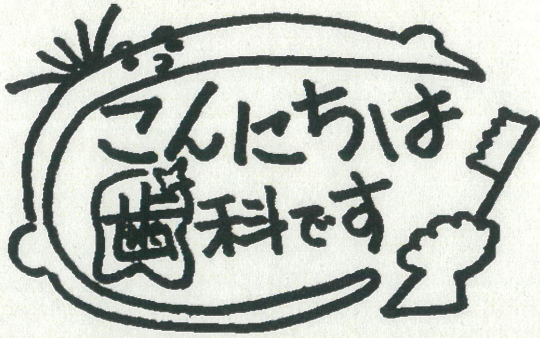 こんにちは
歯科です